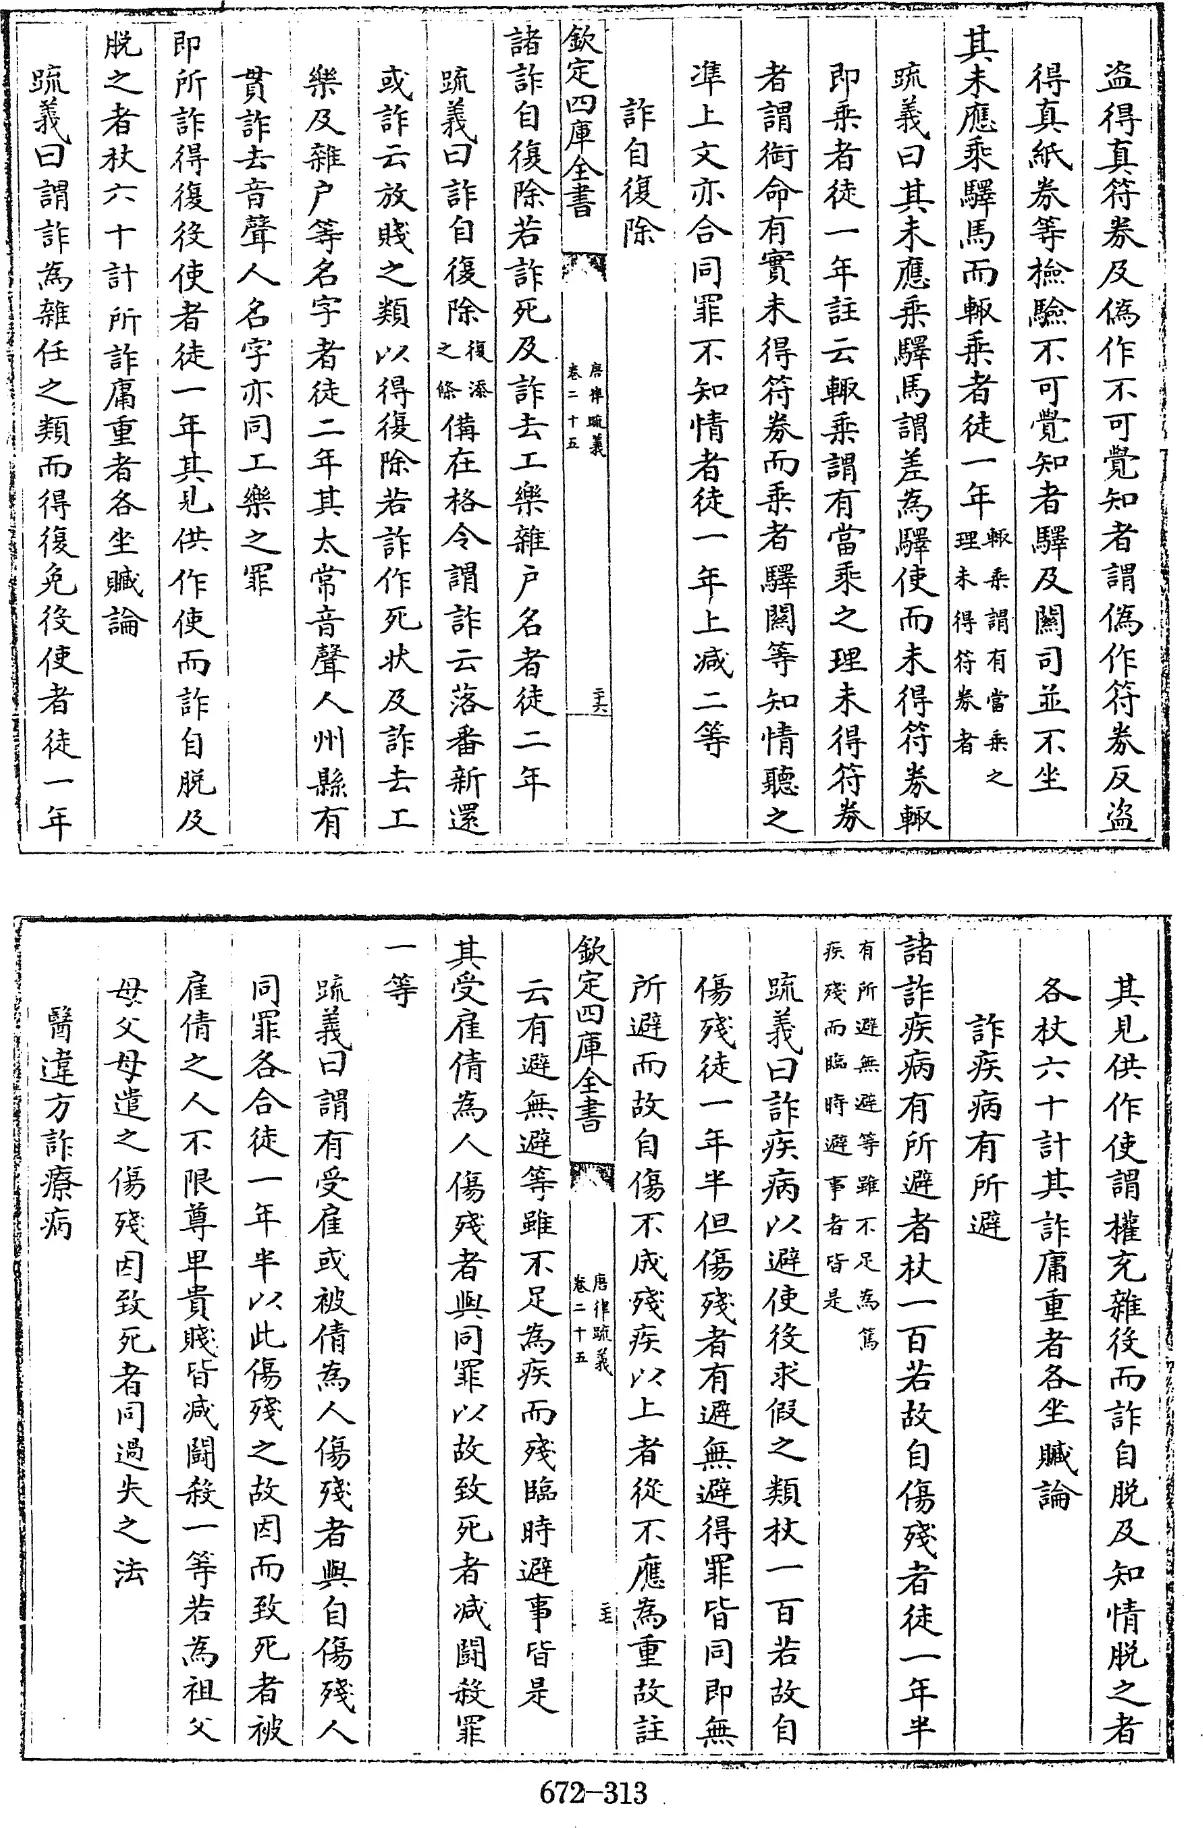 盗得真符券及偽作不可覺知者謂偽作符券反盜
得真紙券等檢驗不可覺知者驛及關司並不坐
其未應乘驛馬而輙乘者徒一年輙乘謂有當乘之
理未得符券者
疏義曰其未應乘驛馬謂差為驛使而未得符券輙
即乘者徒一年註云輙乘謂有當乘之理未得符券
者謂銜命有實未得符券而乘者驛關等知情聽之
準上文亦合同罪不知情者徒一年上减二等
詐自復除
欽定四庫全書
唐律疏義
卷二十五
諸詐自復除若詐死及詐去工樂雜户名者徒二年
疏義曰詐自復除復添
之條備在格令謂詐云落番新還
或詐云放賤之類以得復除若詐作死狀及詐去工
樂及雜户等名字者徒二年其太常音聲人州縣有
貫詐去音聲人名字亦同工樂之罪
即所詐得復役使者徒一年其見供作使而詐自脱及
脱之者杖六十計所詐庸重者各坐贓論
疏義曰謂詐為雜任之類而得復免役使者徒一年
其見供作使謂權充雜役而詐自脱及知情脱之者
各杖六十計其詐庸重者各坐贓論
詐疾病有所避
諸詐疾病有所避者杖一百若故自傷殘者徒一年半
有所避無避等雖不足為篤
疾殘而臨時避事者皆是
疏義曰詐疾病以避使役求假之類杖一百若故自
傷殘徒一年半但傷殘者有避無避得罪皆同即無
所避而故自傷不成殘疾以上者從不應為重故註
欽定四庫全書
唐律疏義
卷二十五
云有避無避等雖不足為疾而殘臨時避事皆是
其受雇倩為人傷殘者與同罪以故致死者减鬭殺罪
一等
疏義曰謂有受雇或被倩為人傷殘者與自傷殘人
同罪各合徒一年半以此傷殘之故因而致死者被
雇倩之人不限尊卑貴賤皆减鬭殺一等若為祖父
母父母遣之傷殘因致死者同過失之法
醫違方詐療病
672-313